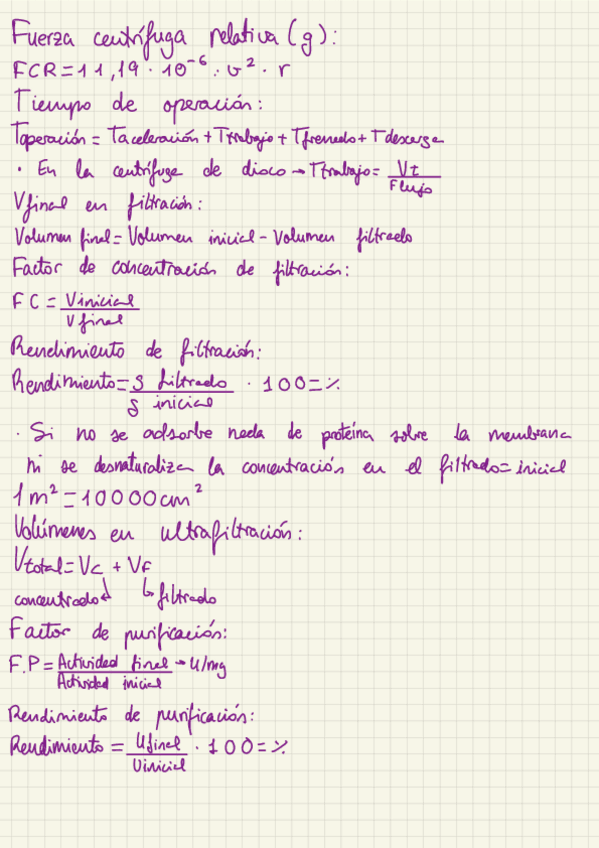 Fuerza centrífuga relativa (g):
FCR = 11,19 · 10⁻⁶ · v² · r
Tiempo de operación:
Toperación = Taceleración + Ttrabajo + Tfrenado + Tdescarga
· En la centrífuga de disco → Ttrabajo = Vt / Flujo
Vfinal en filtración:
Volumen final = Volumen inicial - Volumen filtrado
Factor de concentración de filtración:
FC = Vinicial / Vfinal
Rendimiento de filtración:
Rendimiento = g filtrado / g inicial · 100 = %
· Si no se adsorbe nada de proteína sobre la membrana
ni se desnaturaliza la concentración en el filtrado = inicial
1 m² = 10000 cm²
Volúmenes en ultrafiltración:
Vtotal = Vc + VF
concentrado ↵ ↳ filtrado
Factor de purificación:
F.P = Actividad final / Actividad inicial → U/mg
Rendimiento de purificación:
Rendimiento = Ufinal / Uinicial · 100 = %